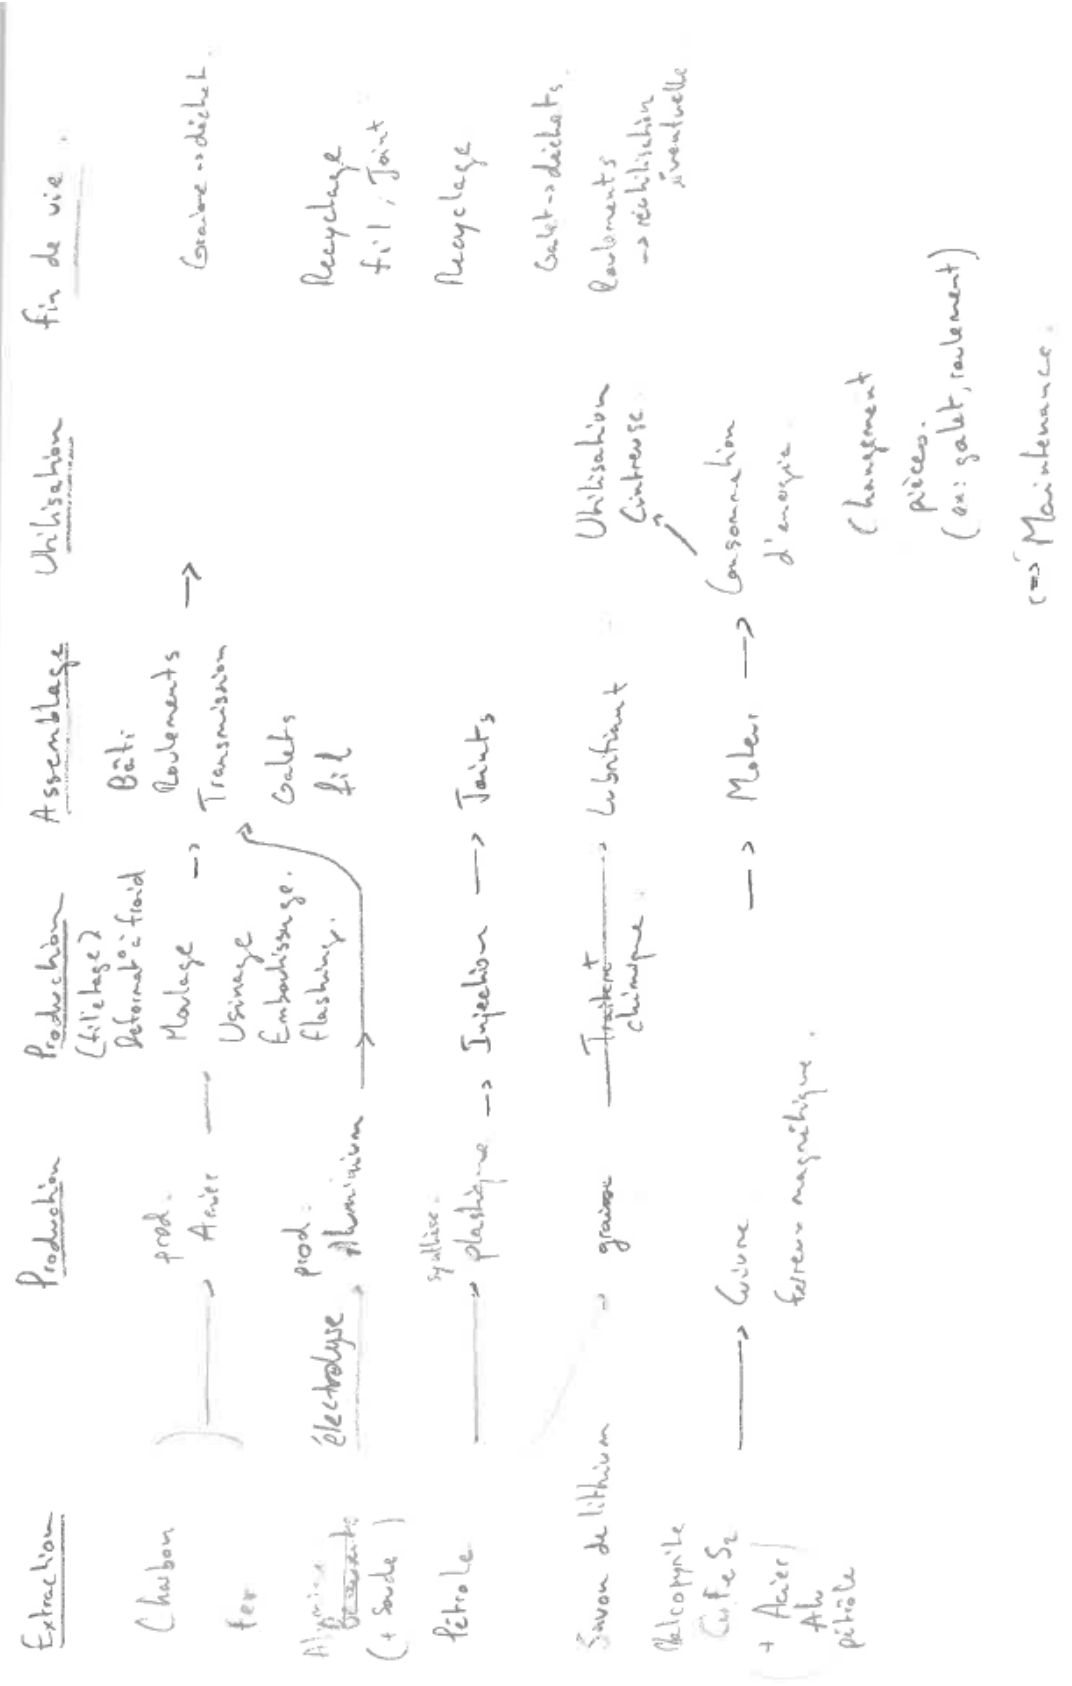 Extraction
Charbon
fer
Alumine
(+ Soude)
Pétrole
Savon de lithium
CuFeS2
+ Acier
Alu
pétrole
Production
prod.
Acier
électrolyse
prod.
Aluminium
synthèse
plastique
graisse
Cuivre
ferreux magnétique.
Production
(filetage)
Déformat° à froid
Moulage
Usinage
Emboutissage.
flashing.
Injection
Traitemt
chimique
Assemblage
Bâti
Roulements
Transmission
Galets
fil
Joints
Lubrifiant
Moteur
Utilisation
Utilisation
Cintreuse.
Consommation
d'énergie.
Changement
pièces.
(ex: galet, roulement)
(=> Maintenance.
fin de vie
Graisse -> déchet.
Recyclage
fil, Joint
Recyclage
Galet -> déchets.
Roulements
-> réutilisation
éventuelle